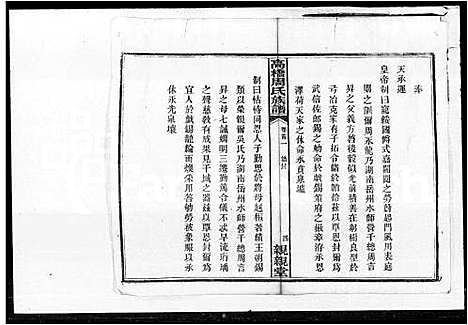 奉
天承運
皇帝制曰寵綏國爵式嘉閥閱之勞蔚起門風用表庭
闈之訓爾周永龍乃湖南岳州水師營千總周言
昇之父義方啓後穀似光前積善在躬樹良型於
弓冶克家有子拓令緒於韜鈐茲以覃恩封爾為
武信佐郎錫之勅命於戲錫策府之徽章洊承恩
澤荷天家之休命永賁泉壚
制曰怙恃同恩人子勤思於將母赳桓著績王朝錫
類以榮親爾吳氏乃湖南岳州水師營千總周言
昇之母七誡嫻明三遷勤篤令儀不忒早流珩瑀
之聲慈教有成果見干城之器茲以覃恩封爾為
於戲錫龍綸而煥采用答劬勞被象服以承
休永光泉壤
高橋周氏族譜
卷首一
誥封
四
親親堂